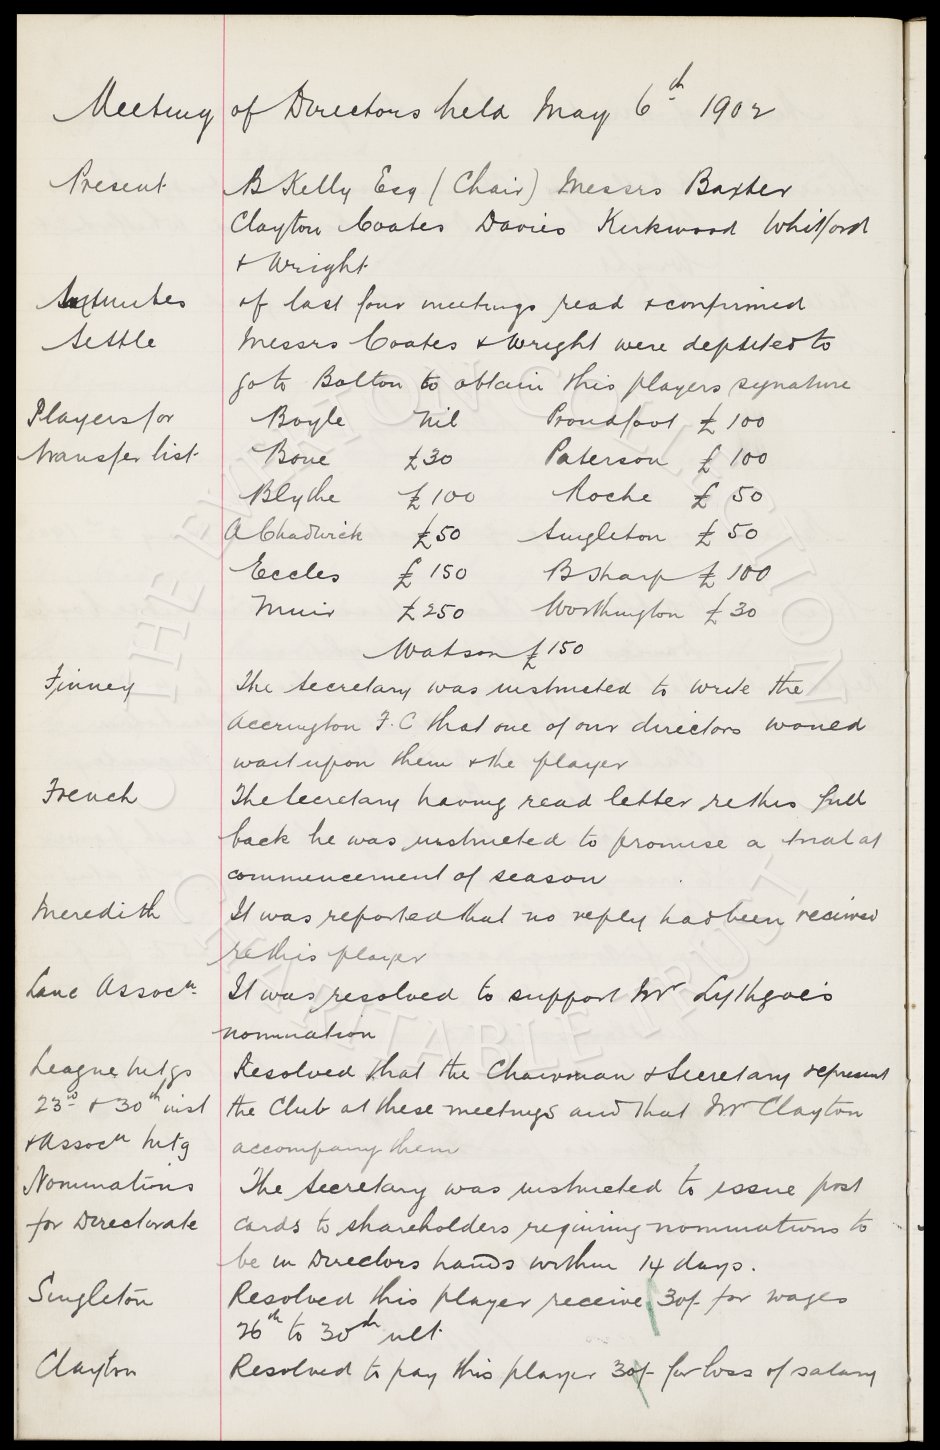 Meeting of Directors held May 6th 1902
Present B Kelly Esq (Chair) Messrs Baxter
Clayton Coates Davies Kirkwood Whitford
& Wright
Minutes of last four meetings read & confirmed
Settle Messrs Coates & Wright were deputed to
go to Bolton to obtain this players signature
Players for Boyle Nil Proudfoot £100
transfer list Bone £30 Paterson £100
Blythe £100 Roche £50
A Chadwick £50 Singleton £50
Eccles £150 B Sharp £100
Muir £250 Worthington £30
Watson £150
Finney The Secretary was instructed to write the
Accrington F.C that one of our directors would
wait upon them & the player
French The Secretary having read letter re this full
back he was instructed to promise a trial at
commencement of season
Meredith It was reported that no reply had been received
re this player
Lanc Assocn It was resolved to support Mr Lythgoe's
nomination
League Mtgs Resolved that the Chairman & Secretary represent
23rd & 30th inst the Club at these meetings and that Mr Clayton
& Assocn Mtg accompany them
Nominations The Secretary was instructed to issue post
for Directorate cards to shareholders requiring nominations to
be in Directors hands within 14 days.
Singleton Resolved this player receive 30/- for wages
26th to 30th ult
Clayton Resolved to pay this player 30/- for loss of salary
THE EVERTON COLLECTION
CHARITABLE TRUST